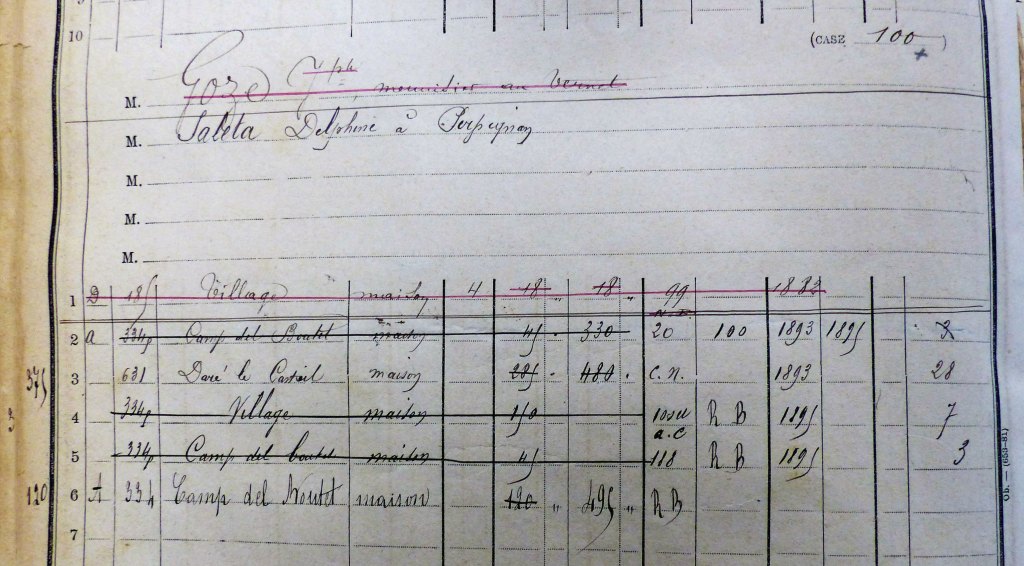 10
(CASE 100)
M. Goze Jph, meunier au Vernet
M. Saleta Delphine à Perpignan
M.
M.
M.
1 D 185 Village maison 4 18 " 18 " 99 1883
2 A 334p Camp del Boutet maison 45 " 330 20 100 1893 1895 3
375 3 631 Daré le Casteil maison 285 " 480 " C.N. 1893 28
3 4 334p Village maison 150 a.c R B 1895 7
5 334p Camp del boutet maison 45 118 R B 1895 3
120 6 A 334 Camp del Noutet maison 120 " 495 " R B
7